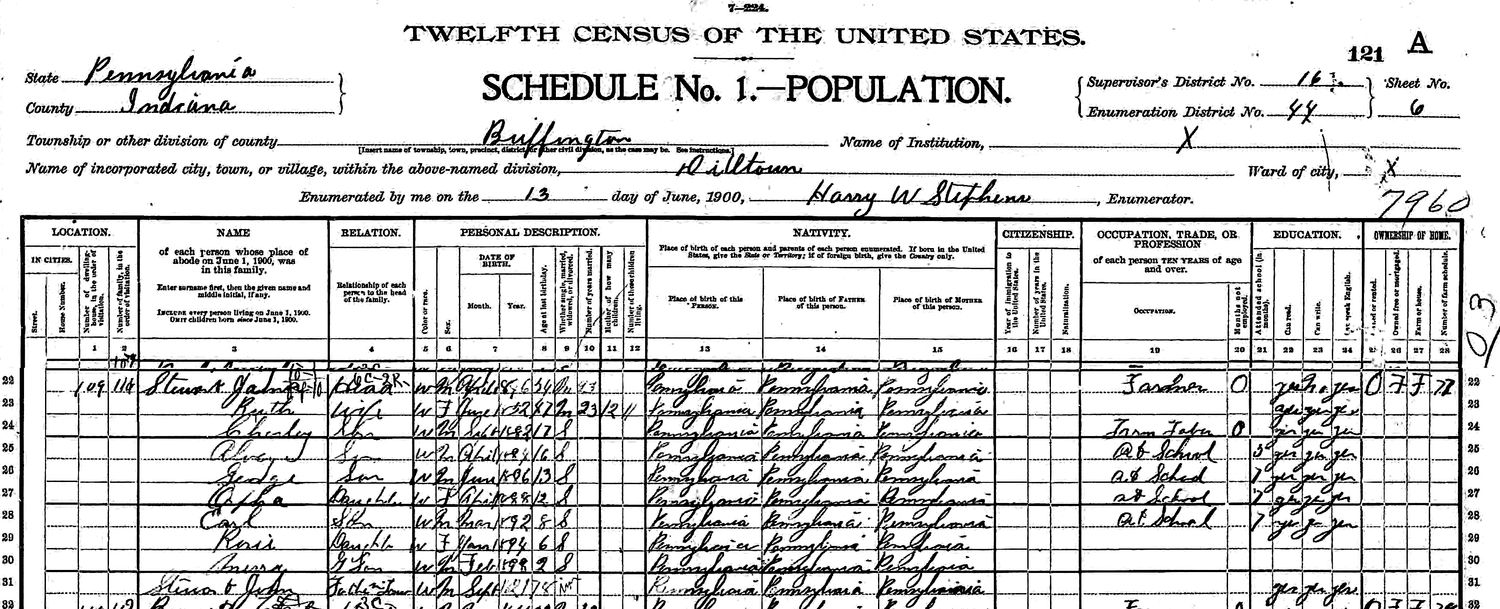 7-224.
TWELFTH CENSUS OF THE UNITED STATES.
121 A
State Pennsylvania
County Indiana
SCHEDULE No. 1.—POPULATION.
Supervisor's District No. 16
Enumeration District No. 44
Sheet No.
6
Township or other division of county Buffington
Name of Institution, X
[Insert name of township, town, precinct, district, or other civil division, as the case may be. See instructions.]
Name of incorporated city, town, or village, within the above-named division, Dilltown
Ward of city, X
Enumerated by me on the 13 day of June, 1900, Harry W Stephens, Enumerator.
7960
LOCATION. NAME RELATION. PERSONAL DESCRIPTION. NATIVITY. CITIZENSHIP. OCCUPATION, TRADE, OR PROFESSION EDUCATION. OWNERSHIP OF HOME.
IN CITIES.
Street.
House Number.
Number of dwelling-house, in the order of visitation.
Number of family, in the order of visitation.
of each person whose place of abode on June 1, 1900, was in this family.
Enter surname first, then the given name and middle initial, if any.
INCLUDE every person living on June 1, 1900.
OMIT children born since June 1, 1900.
Relationship of each person to the head of the family.
Color or race.
Sex.
DATE OF BIRTH.
Month. Year.
Age at last birthday.
Whether single, married, widowed, or divorced.
Number of years married.
Mother of how many children.
Number of these children living.
Place of birth of each person and parents of each person enumerated. If born in the United States, give the State or Territory; if of foreign birth, give the Country only.
Place of birth of this PERSON.
Place of birth of FATHER of this person.
Place of birth of MOTHER of this person.
Year of immigration to the United States.
Number of years in the United States.
Naturalization.
of each person TEN YEARS of age and over.
OCCUPATION.
Months not employed.
Attended school (in months).
Can read.
Can write.
Can speak English.
Owned or rented.
Owned free or mortgaged.
Farm or house.
Number of farm schedule.
1 2 3 4 5 6 7 8 9 10 11 12 13 14 15 16 17 18 19 20 21 22 23 24 25 26 27 28
22 109 Head W M M Pennsylvania Pennsylvania Pennsylvania 0 yes yes O F F 22
23 Ruth Wife W F June 1852 47 M 23 12 11 Pennsylvania Pennsylvania Pennsylvania yes yes 23
24 Son W M Sept 1882 17 S Pennsylvania Pennsylvania Pennsylvania 0 yes yes 24
25 Son W M 16 S Pennsylvania Pennsylvania Pennsylvania At School 5 yes yes yes 25
26 George Son W M 1886 13 S Pennsylvania Pennsylvania Pennsylvania at School 7 yes yes yes 26
27 Orpha Daughter W F 1888 12 S Pennsylvania Pennsylvania Pennsylvania at School 7 yes yes yes 27
28 Carl Son W M Mar 1892 8 S Pennsylvania Pennsylvania Pennsylvania At School 7 yes yes yes 28
29 Daughter W F 1894 6 S Pennsylvania Pennsylvania Pennsylvania 29
30 G Son W M Feb 1898 2 S Pennsylvania Pennsylvania Pennsylvania 30
31 John W M Sept 78 Pennsylvania Pennsylvania Pennsylvania yes yes yes 31
32